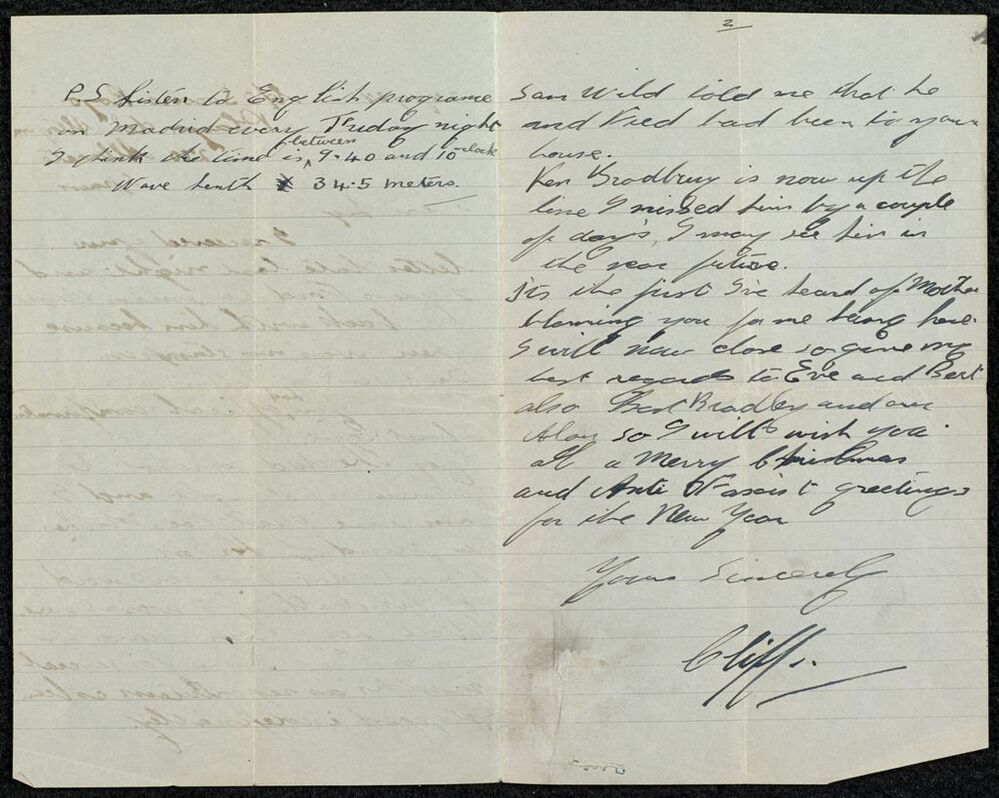 2
Sam Wild told me that he
and Fred had been to your
house.
Ken Bradbury is now up the
line I missed him by a couple
of day's, I may see him in
the near future.
It's the first I've heard of Mother
blaming you for me being here.
I will now close so give my
best regards to Eve and Bert
also Bert Bradley and our
Alan so I will wish you
all a Merry Christmas
and Anti Fascist greetings
for the New Year
Yours Sincerely
Cliff.
P.S Listen to English programe
on Madrid every Friday night
I think the time is between 9.40 and 10 oclock
Wave lenth 34.5 meters.